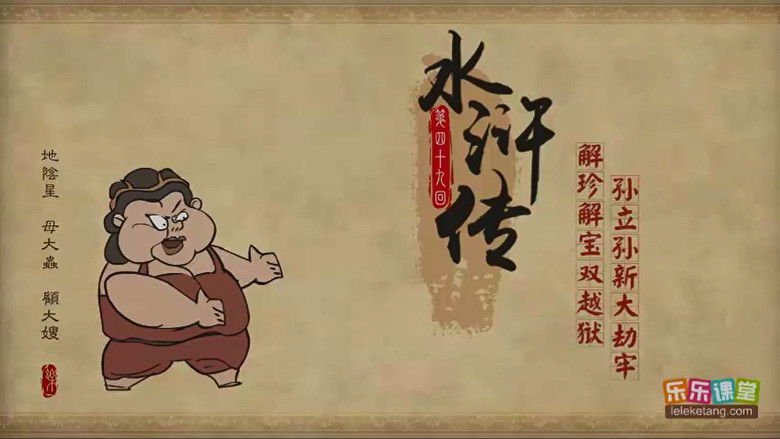 水浒传
第四十九回
解珍解宝双越狱
孙立孙新大劫牢
地陰星 母大蟲 顧大嫂
乐乐课堂
leleketang.com